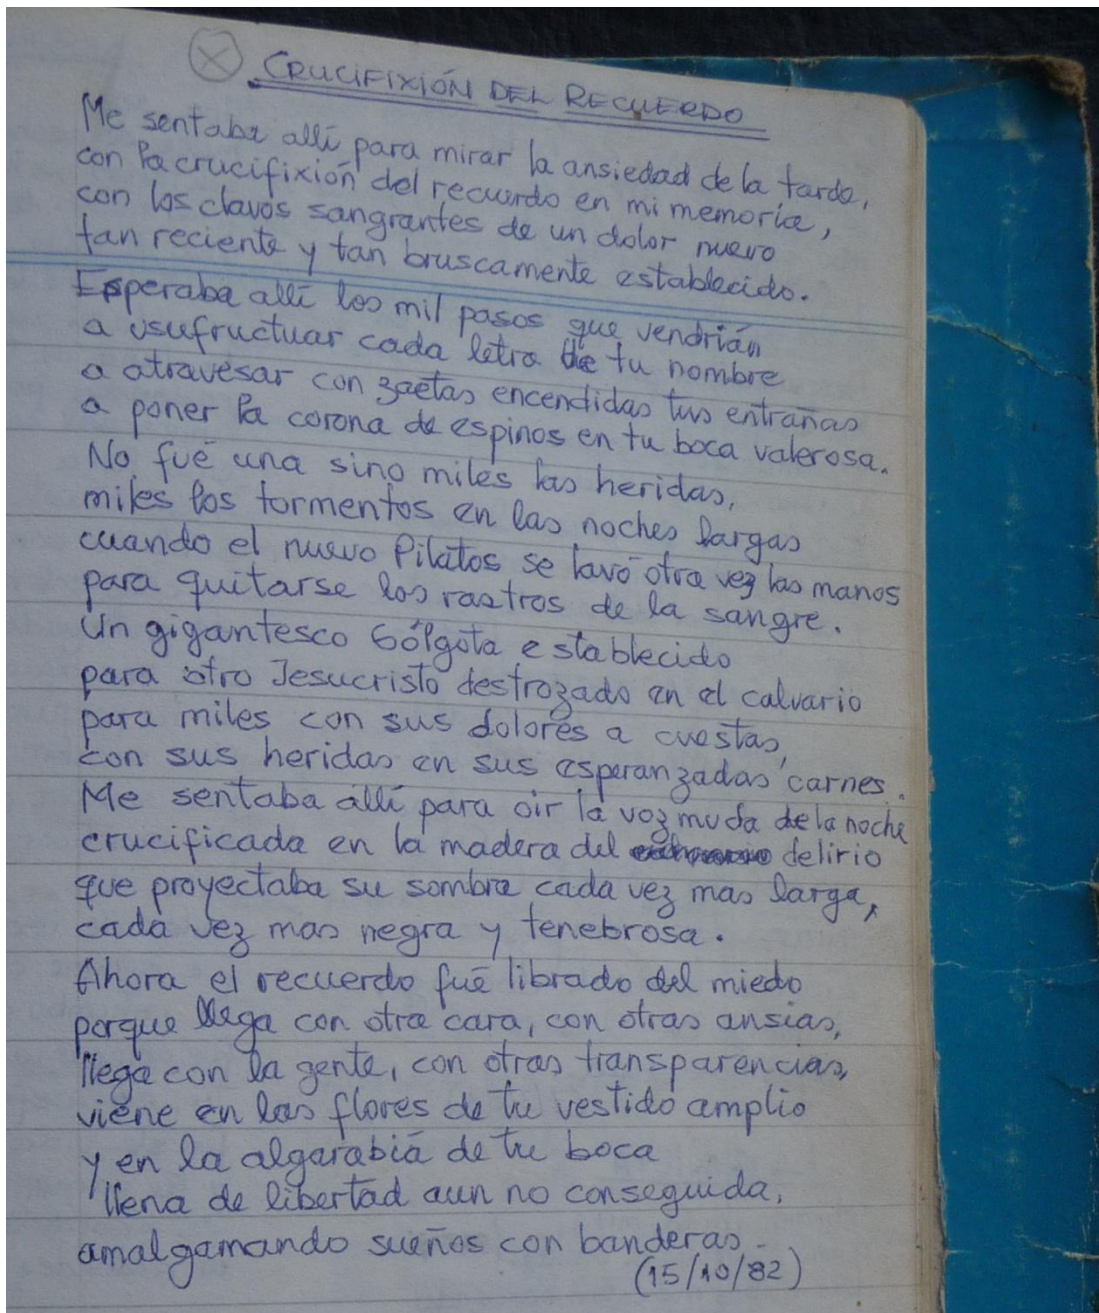 X CRUCIFIXIÓN DEL RECUERDO
Me sentaba allí para mirar la ansiedad de la tarde,
con la crucifixión del recuerdo en mi memoria,
con los clavos sangrantes de un dolor nuevo
tan reciente y tan bruscamente establecido.
Esperaba allí los mil pasos que vendrían
a usufructuar cada letra de tu nombre
a atravesar con zaetas encendidas tus entrañas
a poner la corona de espinos en tu boca valerosa.
No fué una sino miles las heridas,
miles los tormentos en las noches largas
cuando el nuevo Pilatos se lavó otra vez las manos
para quitarse los rastros de la sangre.
Un gigantesco Gólgota establecido
para otro Jesucristo destrozado en el calvario
para miles con sus dolores a cuestas,
con sus heridas en sus esperanzadas carnes.
Me sentaba allí para oir la voz muda de la noche
crucificada en la madera del delirio
que proyectaba su sombra cada vez mas larga,
cada vez mas negra y tenebrosa.
Ahora el recuerdo fué librado del miedo
porque llega con otra cara, con otras ansias,
llega con la gente, con otras transparencias,
viene en las flores de tu vestido amplio
y en la algarabiá de tu boca
llena de libertad aun no conseguida,
amalgamando sueños con banderas.
(15/10/82)